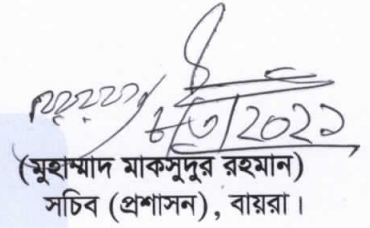 ৮/৩/২০২১
(মুহাম্মাদ মাকসুদুর রহমান)
সচিব (প্রশাসন), বায়রা।